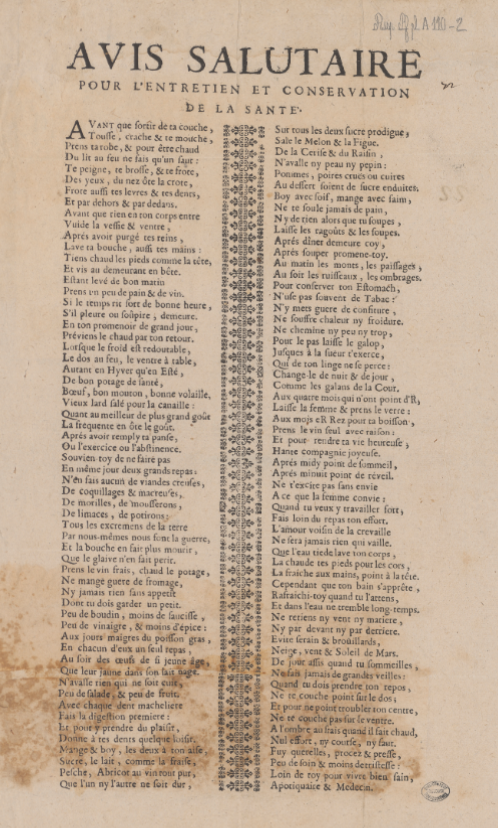 AVIS SALUTAIRE
POUR L'ENTRETIEN ET CONSERVATION
DE LA SANTE.
AVANT que sortir de ta couche,
Tousse, crache & te mouche,
Prens ta robe, & pour être chaud
Du lit au feu ne fais qu'un saut:
Te peigne, te brosse, & te frote,
Des yeux, du nez ôte la crote,
Frote aussi tes levres & tes dents,
Et par dehors & par dedans.
Avant que rien en ton corps entre
Vuide la vessie & ventre,
Aprés avoir purgé tes reins,
Lave ta bouche, aussi tes mains:
Tiens chaud les pieds comme la tête,
Et vis au demeurant en bête.
Estant levé de bon matin
Prens un peu de pain & de vin.
Si le temps rit sort de bonne heure,
S'il pleure ou soûpire, demeure.
En ton promenoir de grand jour,
Préviens le chaud par ton retour.
Lorsque le froid est redoutable,
Le dos au feu, le ventre à table,
Autant en Hyver qu'en Esté,
De bon potage de santé,
Bœuf, bon mouton, bonne volaille,
Vieux lard salé pour la canaille:
Quant au meilleur de plus grand goût
La fréquente en ôte le goût.
Aprés avoir remply ta panse,
Ou l'exercice ou l'abstinence.
Souvien toy de ne faire pas
En même jour deux grands repas:
N'en fais aucun de viandes creuses,
De coquillages & macreuses,
De morilles, de mousserons,
De limaces, de potirons;
Tous les excremens de la terre
Par nous-mêmes nous font la guerre,
Et la bouche en fait plus mourir,
Que le glaive n'en fait perir.
Prens le vin frais, chaud le potage,
Ne mange guere de fromage,
Ny jamais rien sans appetit
Dont tu dois garder un petit.
Peu de boudin, moins de saucisse,
Peu de vinaigre, & moins d'épice:
Aux jours maigres du poisson gras,
En chacun d'eux un seul repas,
Au soir des œufs de si jeune âge,
Que leur jaune dans son lait nage.
N'avalle rien qui ne soit cuit,
Peu de salade, & peu de fruit.
Avec chaque dent macheliere
Fais la digestion premiere:
Et pour y prendre du plaisir,
Donne à tes dents quelque loisir.
Mange & boy, les deux à ton aise,
Sucre, le lait, comme la fraise,
Pesche, Abricot au vin tout pur,
Que l'un ny l'autre ne soit dur,
Sur tous les deux sucre prodigue,
Sale le Melon & la Figue.
De la Cerise & du Raisin,
N'avalle ny peau ny pepin:
Pommes, poires crues ou cuites
Au dessert soient de sucre enduites.
Boy avec soif, mange avec faim,
Ne te soule jamais de pain,
Ny de rien alors que tu soupes,
Laisse les ragoûts & les soupes.
Aprés dîner demeure coy,
Aprés souper promene-toy.
Au matin les monts, les paissages,
Au soir les ruisseaux, les ombrages.
Pour conserver ton Estomach,
N'use pas souvent de Tabac:
N'y mets guere de confiture,
Ne souffre chaleur ny froidure.
Ne chemine ny peu ny trop,
Pour le pas laisse le galop,
Jusques à la sueur t'exerce,
Qui de ton linge ne se perce:
Change-le de nuit & de jour,
Comme les galans de la Cour.
Aux quatre mois qui n'ont point d'R,
Laisse la femme & prens le verre:
Aux mois eR Rez pour ta boisson,
Prens le vin seul avec raison:
Et pour rendre ta vie heureuse,
Hante compagnie joyeuse.
Aprés midy point de sommeil,
Aprés minuit point de réveil.
Ne t'excite pas sans envie
A ce que la femme convie:
Quand tu veux y travailler fort,
Fais loin du repas ton effort.
L'amour voisin de la crevaille
Ne sera jamais rien qui vaille.
Que l'eau tiede lave ton corps,
La chaude tes pieds pour les cors,
La fraiche aux mains, point à la tête.
Cependant que ton bain s'apprête,
Rafraichi-toy quand tu l'attens,
Et dans l'eau ne tremble long-temps.
Ne retiens ny vent ny mariere,
Ny par devant ny par derriere.
Evite serain & brouillards,
Neige, vent & Soleil de Mars.
De jour assis quand tu sommeilles,
Ne fais jamais de grandes veilles:
Quand tu dois prendre ton repos,
Ne te couche point sur le dos,
Et pour ne point troubler ton centre,
Ne te couche pas sur le ventre.
A l'ombre au frais quand il fait chaud,
Nul effort, ny course, ny saut.
Fuy querelles, procez & presse,
Peu de soin & moins de tristesse:
Loin de toy pour vivre bien sain,
Apotiquaire & Medecin.